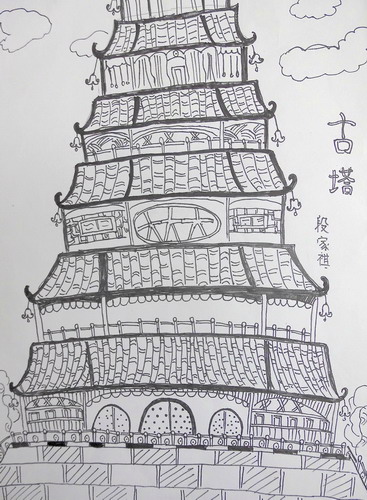 古塔
段家祺